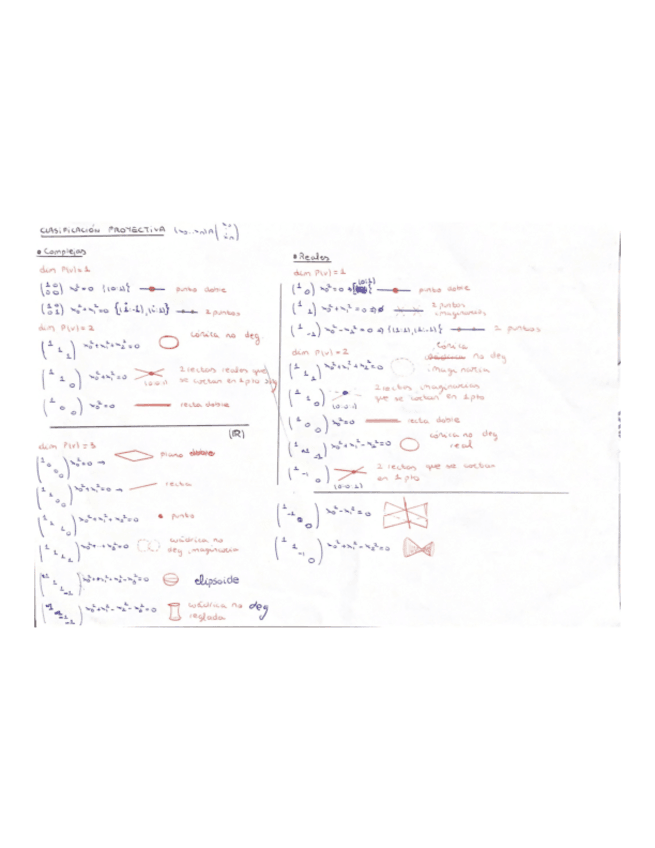 CLASIFICACIÓN PROYECTIVA (x₀...xₙ)A(x₀ ⋮ xₙ)
• Complejas
dim P(V)=1
(1 0 / 0 0) x₀²=0 {(0:1)} punto doble
(1 0 / 0 1) x₀²+x₁²=0 2 puntos
dim P(V)=2
(1 1 1) x₀²+x₁²+x₂²=0 cónica no deg
(1 1 0) x₀²+x₁²=0 (0:0:1) 2 rectas reales que se cortan en 1 pto
(1 0 0) x₀²=0 recta doble
(ℝ)
dim P(V)=3
(1 0 0 0) x₀²=0 → plano doble
(1 1 0 0) x₀²+x₁²=0 → recta
(1 1 1 0) x₀²+x₁²+x₂²=0 punto
(1 1 1 1) x₀²+...=0 cuádrica no deg imaginaria
x₀²+x₁²+x₂²-x₃²=0 elipsoide
x₀²+x₁²-x₂²-x₃²=0 cuádrica no deg reglada
• Reales
dim P(V)=1
(1 0) x₀²=0 {(0:1)} punto doble
(1 1) x₀²+x₁²=0 ⇒ ∅ 2 puntos imaginarios
(1 -1) x₀²-x₁²=0 ⇒ {(1:1),(1:-1)} 2 puntos
dim P(V)=2
(1 1 1) x₀²+x₁²+x₂²=0 cónica no deg imaginaria
(1 1 0) (0:0:1) 2 rectas imaginarias que se cortan en 1 pto
(1 0 0) x₀²=0 recta doble
(1 1 -1) x₀²+x₁²-x₂²=0 cónica no deg real
(1 -1 0) (0:0:1) 2 rectas que se cortan en 1 pto
(1 -1 0 0) x₀²-x₁²=0
(1 1 -1 0) x₀²+x₁²-x₂²=0